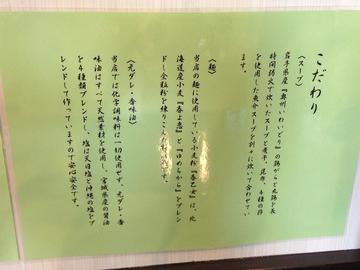 こだわり
〈スープ〉
岩手県産『奥州いわいどり』の鶏がらと丸鶏を長
時間弱火で炊いたスープと煮干、昆布、4種の節
を使用した魚介スープを別々に炊いて合わせてい
ます。
〈麺〉
当店の麺に使用している小麦粉『春乙女』は、北
海道産小麦『春よ恋』と『ゆめちから』をブレン
ドし全粒粉を練りこん
〈元ダレ・香味油〉
当店では化学調味料は一切使用せず、元ダレ・香
味油はすべて天然素材を使用し、宮城県産の醤油
を4種類ブレンドし、塩は天日塩と沖縄の塩をブ
レンドして作っていますので安心安全です。